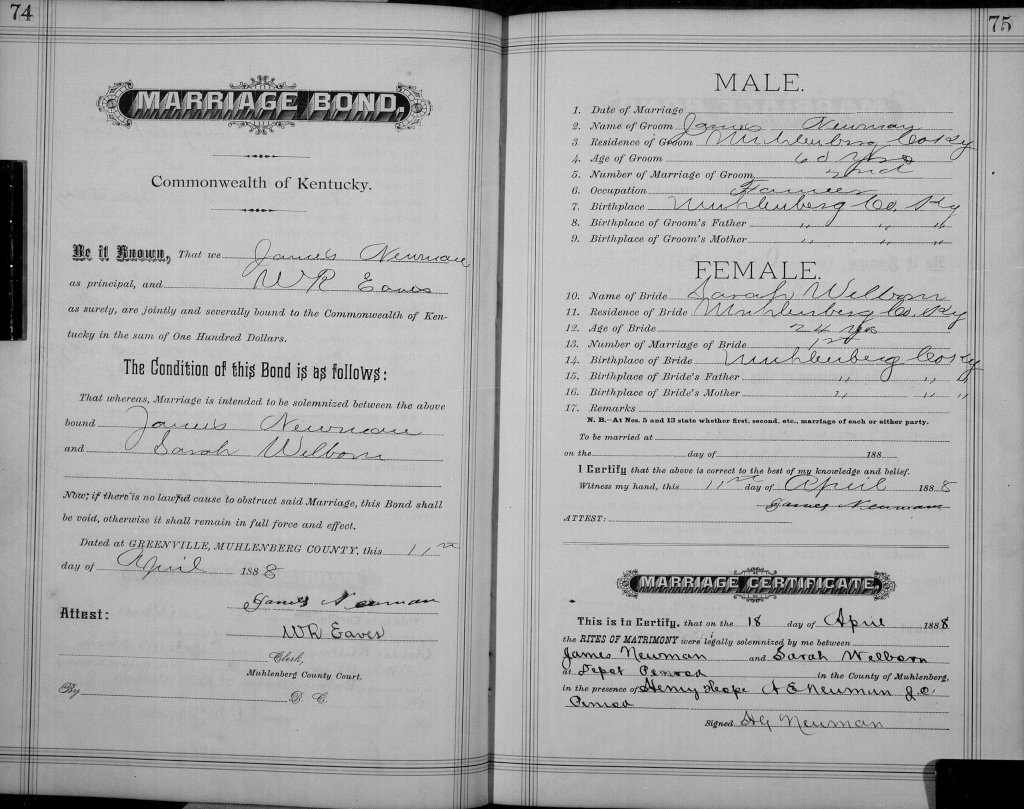 74
MARRIAGE BOND.
Commonwealth of Kentucky.
Be it Known, That we James Newman
as principal, and W R Eaves
as surety, are jointly and severally bound to the Commonwealth of Ken-
tucky in the sum of One Hundred Dollars.
The Condition of this Bond is as follows:
That whereas, Marriage is intended to be solemnized between the above
bound James Newman
and Sarah Welborn
Now, if there is no lawful cause to obstruct said Marriage, this Bond shall
be void, otherwise it shall remain in full force and effect.
Dated at GREENVILLE, MUHLENBERG COUNTY, this 11th
day of April 1888
James Newman
Attest:
WR Eaves
Clerk,
Muhlenberg County Court.
By D. C.
75
MALE.
1. Date of Marriage
2. Name of Groom James Newman
3. Residence of Groom Muhlenberg Co Ky
4. Age of Groom Yrs
5. Number of Marriage of Groom
6. Occupation Farmer
7. Birthplace Muhlenberg Co. Ky
8. Birthplace of Groom's Father " " "
9. Birthplace of Groom's Mother " " "
FEMALE.
10. Name of Bride Sarah Welborn
11. Residence of Bride Muhlenberg Co. Ky
12. Age of Bride 24 Yrs
13. Number of Marriage of Bride 1st
14. Birthplace of Bride Muhlenberg Co Ky
15. Birthplace of Bride's Father " " "
16. Birthplace of Bride's Mother " " "
17. Remarks
N. B.—At Nos. 5 and 13 state whether first, second, etc., marriage of each or either party.
To be married at
on the day of 188
I Certify that the above is correct to the best of my knowledge and belief.
Witness my hand, this 11th day of April 1888
James Newman
ATTEST:
MARRIAGE CERTIFICATE.
This is to Certify, that on the 18 day of April 1888
the RITES OF MATRIMONY were legally solemnized by me between
James Newman and Sarah Welborn
at Depot Penrod in the County of Muhlenberg,
in the presence of Henry Hope A E Newman J C
Penrod
Signed HG Newman